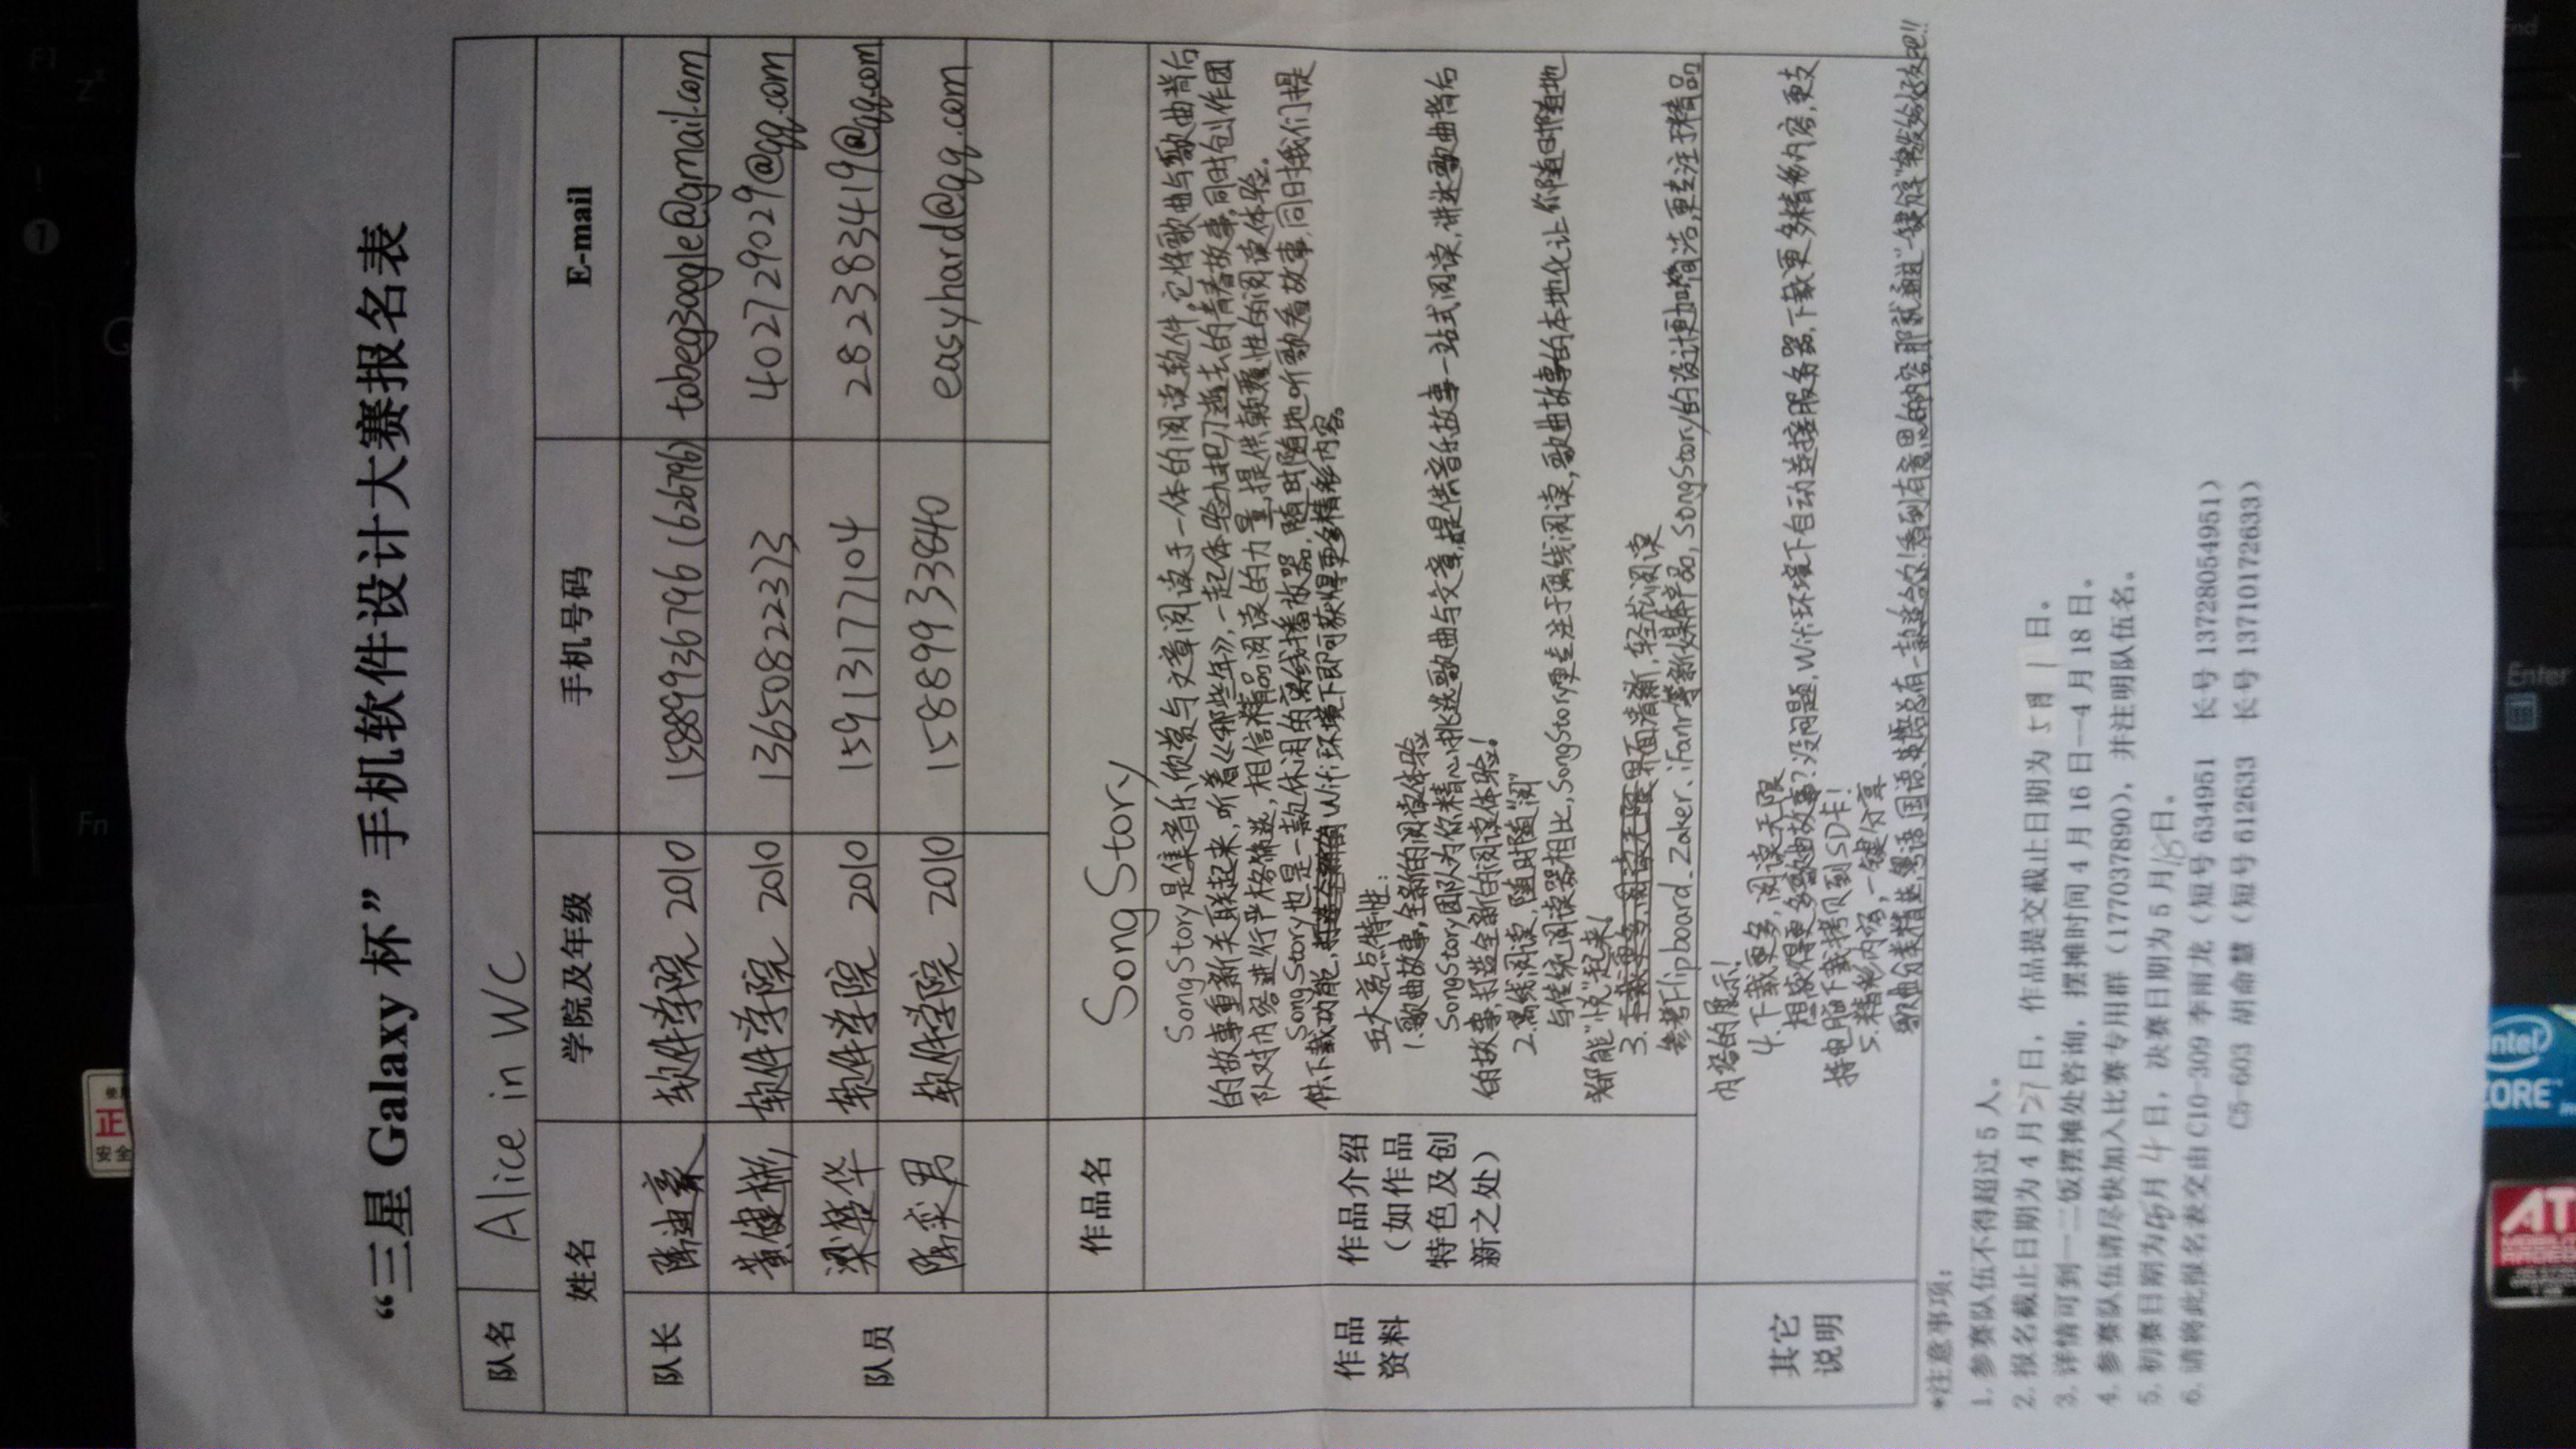 “三星 Galaxy 杯”手机软件设计大赛报名表
队名 Alice in WC
姓名 学院及年级 手机号码 E-mail
队长 陈迪豪 软件学院 2010 15889936796 (626796) tobeg3oogle@gmail.com
队员 黄健彬 软件学院 2010 13650822373 402729029@qq.com
梁誉华 软件学院 2010 15913177104 282383419@qq.com
陈奕男 软件学院 2010 15889933840 easyhard@qq.com
作品资料
作品名 SongStory
作品介绍
（如作品
特色及创
新之处）
SongStory是集音乐欣赏与文章阅读于一体的阅读软件,它将歌曲与歌曲背后
的故事重新关联起来,听着《那些年》,一起体验九把刀逝去的青春故事,同时创作团
队对内容进行严格筛选,相信精品阅读的力量,提供颠覆性的阅读体验。
SongStory也是一款休闲的离线播放器,随时随地听歌看故事,同时我们提
供下载功能, Wifi环境下即可获得更多精彩内容。
五大亮点特性:
1.歌曲故事,全新的阅读体验
SongStory团队为你精心挑选歌曲与文章,提供音乐故事一站式阅读,讲述歌曲背后
的故事,打造全新的阅读体验!
2.离线阅读,随时随“阅”
与传统阅读器相比,SongStory更专注于离线阅读,歌曲故事的本地化让你随时随地
都能“悦”起来!
3.下载更多,阅读无限界面清新,轻松阅读
参考Flipboard、Zaker、iFanr等新媒体产品,SongStory的设计更加简洁,更专注于精品
其它
说明
内容的展示!
4.下载更多,阅读无限
想获得更多歌曲故事?没问题,Wifi环境下自动连接服务器,下载更多精彩内容,更支
持电脑下载拷贝到SD卡!
5.精彩内容,一键分享
歌曲分类精选,粤语、国语、英语总有一款适合你!看到有意思的内容,那就通过“一键分享”转发给好友吧!!
*注意事项：
1. 参赛队伍不得超过 5 人。
2. 报名截止日期为 4 月 27 日，作品提交截止日期为 5 月 1 日。
3. 详情可到一二饭摆摊处咨询，摆摊时间 4 月 16 日—4 月 18 日。
4. 参赛队伍请尽快加入比赛专用群（177037890），并注明队伍名。
5. 初赛日期为 月 4 日，决赛日期为 5 月 日。
6. 请将此报名表交由 C10-309 李雨龙（短号 634951 长号 13728054951）
C5-603 胡命慧（短号 612633 长号 13710172633）
Fn
Enter
End
intel
CORE
ATI
正
安全